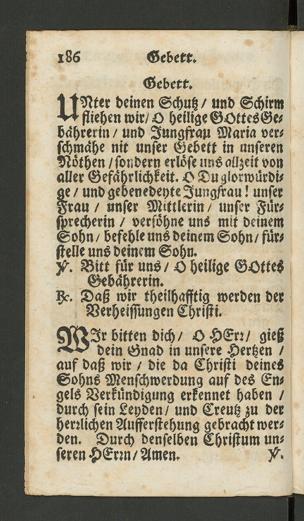 186 Gebett.
Gebett.
UNter deinen Schutz / und Schirm
fliehen wir / O heilige GOttes Ge-
bährerin / und Jungfrau Maria ver-
schmähe nit unser Gebett in unseren
Nöthen / sondern erlöse uns allzeit von
aller Gefährlichkeit. O Du glorwürdi-
ge / und gebenedeyte Jungfrau! unser
Frau / unser Mittlerin / unser Für-
sprecherin / versöhne uns mit deinem
Sohn / befehle uns deinem Sohn / für-
stelle uns deinem Sohn.
℣. Bitt für uns / O heilige GOttes
Gebährerin.
℟. Daß wir theilhafftig werden der
Verheissungen Christi.
WIr bitten dich / O HErr / gieß
dein Gnad in unsere Hertzen /
auf daß wir / die da Christi deines
Sohns Menschwerdung auf des En-
gels Verkündigung erkennet haben /
durch sein Leyden / und Creutz zu der
herrlichen Aufferstehung gebracht wer-
den. Durch denselben Christum un-
seren HErrn / Amen. ℣.